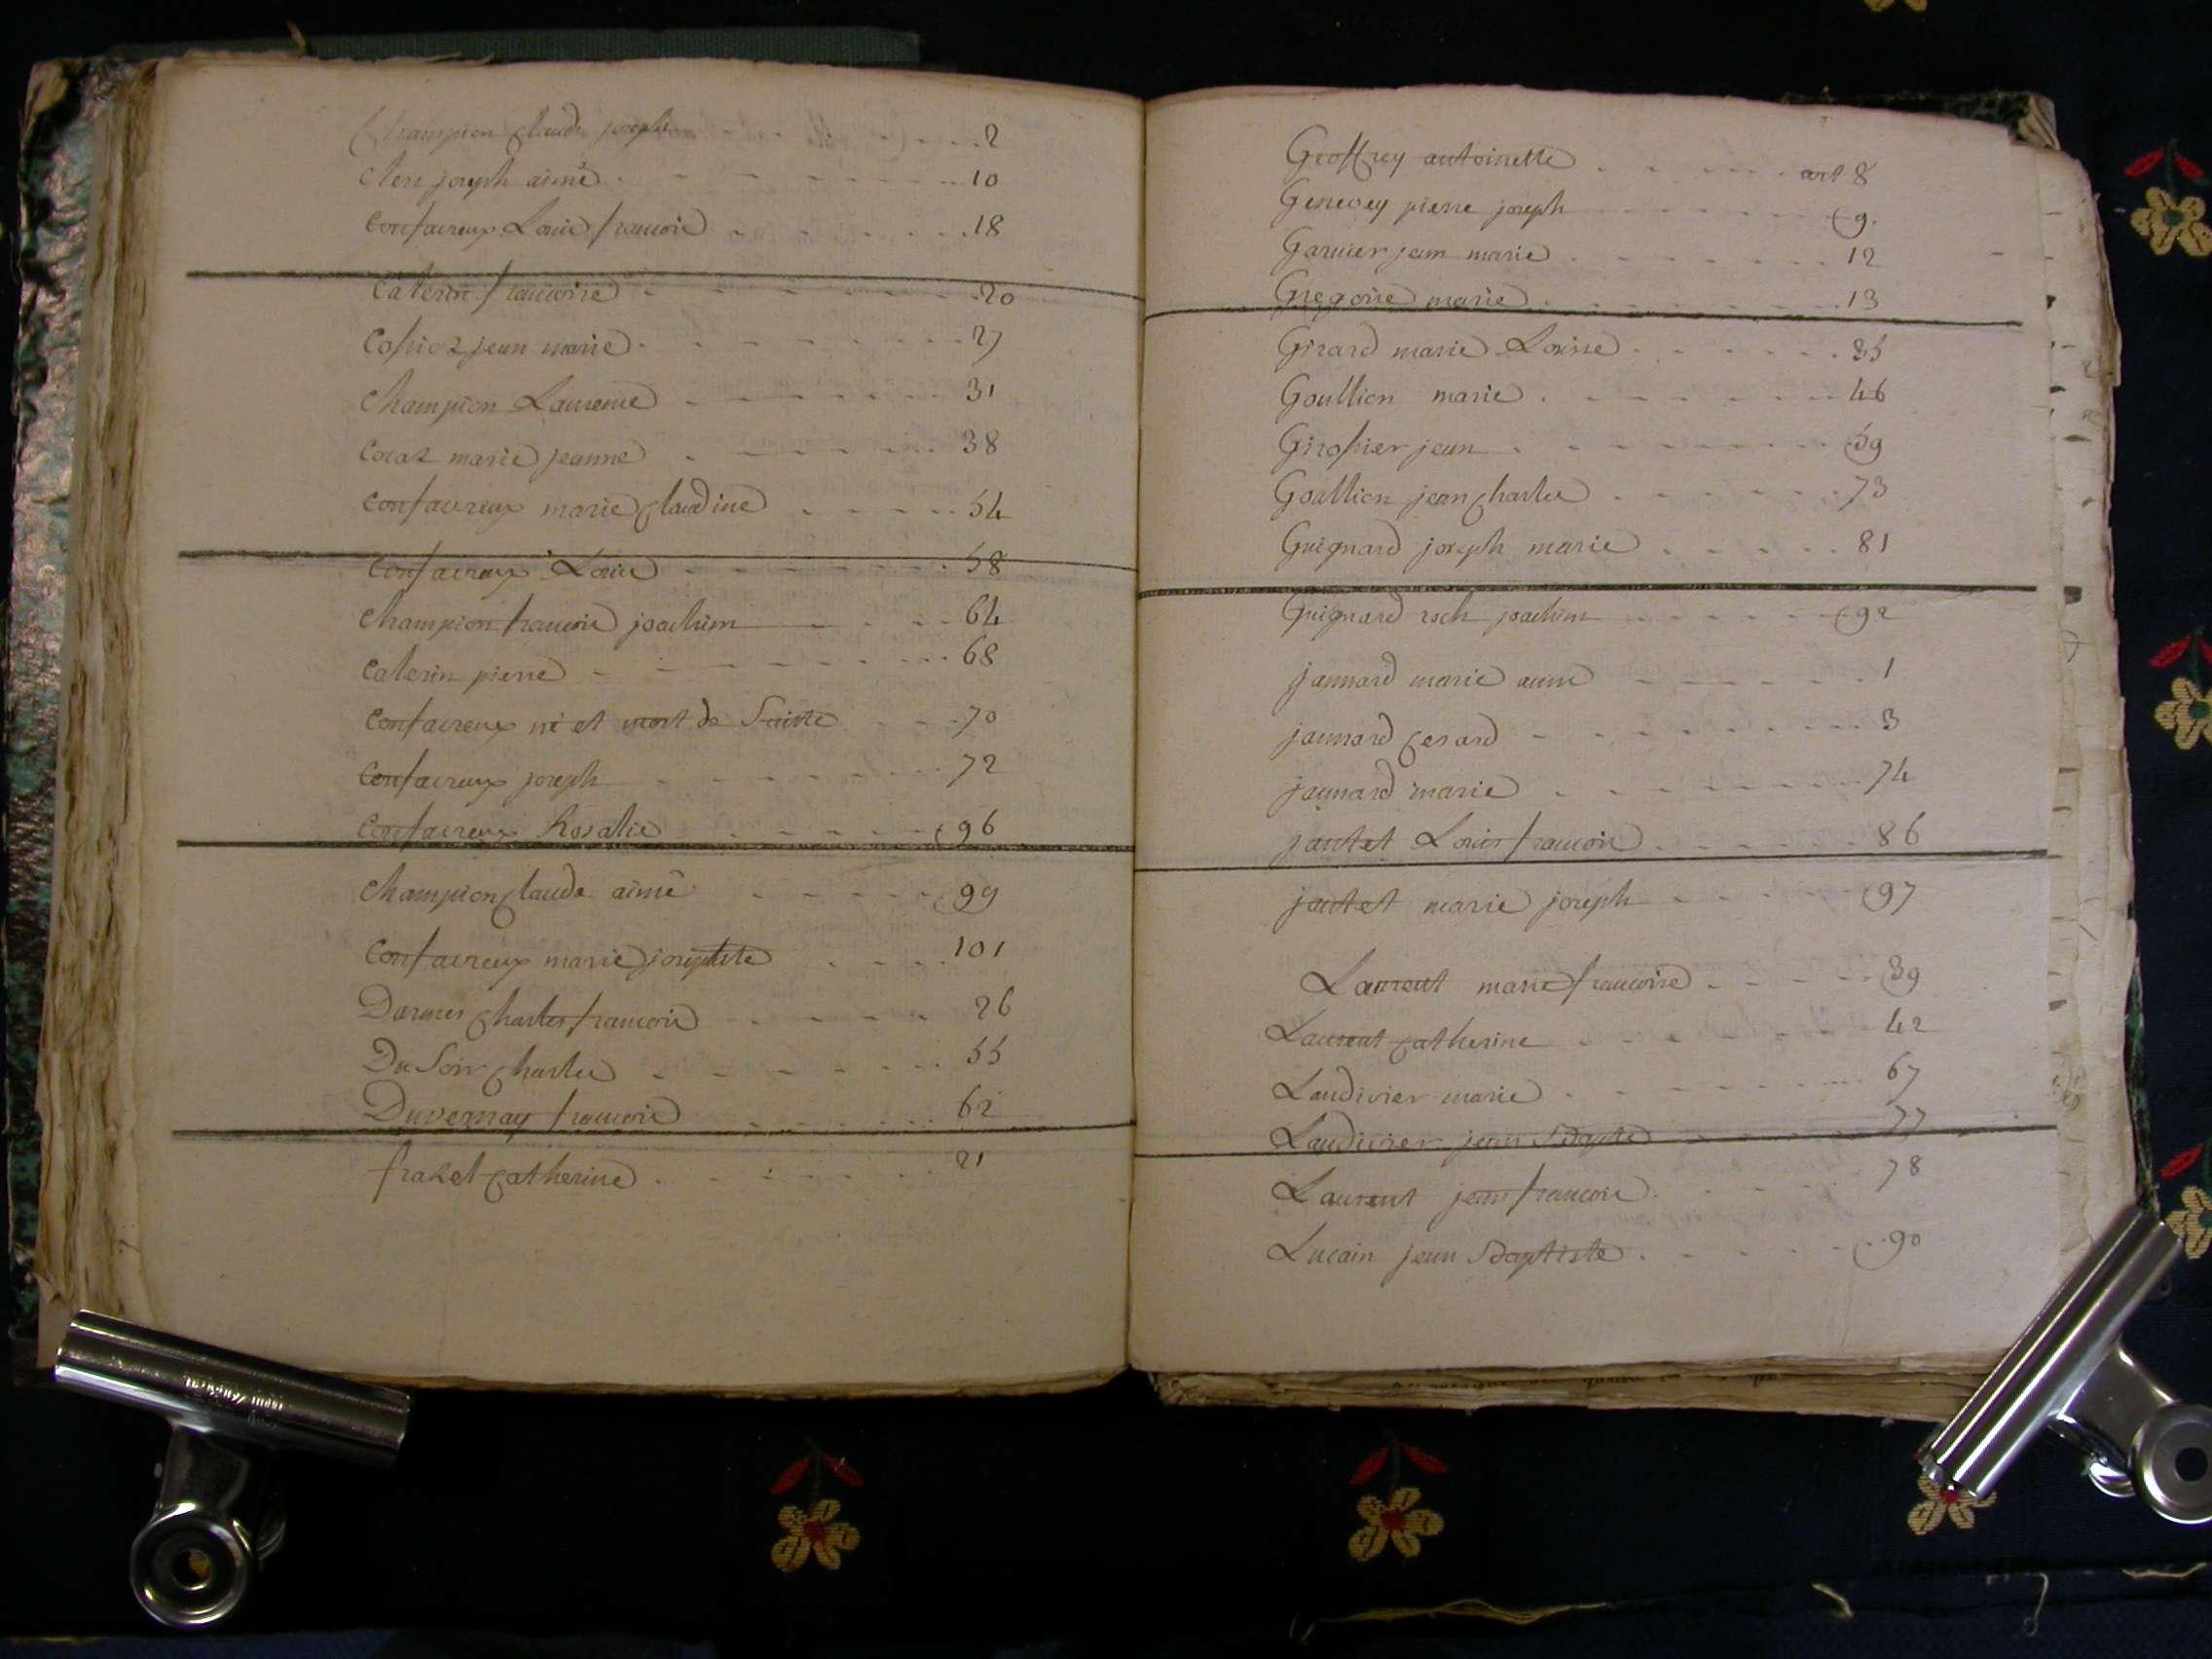 Champion Claude joseph 2
Clerc joseph aimé 10
Confavreux Louis françois 18
Caterin françoise 20
Cosnier jean marie 27
Champion Laurence 31
Coraz marie jeanne 38
Confavreux marie Claudine 54
Confavreux Louis 58
Champion françois joachim 64
Caterin pierre 68
Confavreux né et mort de Suitte 70
Confavreux joseph 72
Confavreux Rosalie 96
Champion Claude aimé 99
Confavreux marie josephte 101
Darmes Charles françois 26
DuSoir Charles 55
Duvernay françois 62
frazet Catherine 21
Geoffrey antoinette art 8
Genevey pierre joseph 9
Garnier jean marie 12
Gregoire marie 13
Girard marie Louise 35
Goullion marie 46
jean 59
Goullion jean Charles 73
Guignard joseph marie 81
Guignard roch joachim 92
jannard marie anne 1
jannard Cesard 3
jannard marie 74
jautet Louis françois 86
jautet marie joseph 97
Laurent marie françoise 39
Laurent Catherine 42
Laudivier marie 67
Laudivier jean Bapte 77
Laurent jean françois 78
Lucain jean Baptiste 90